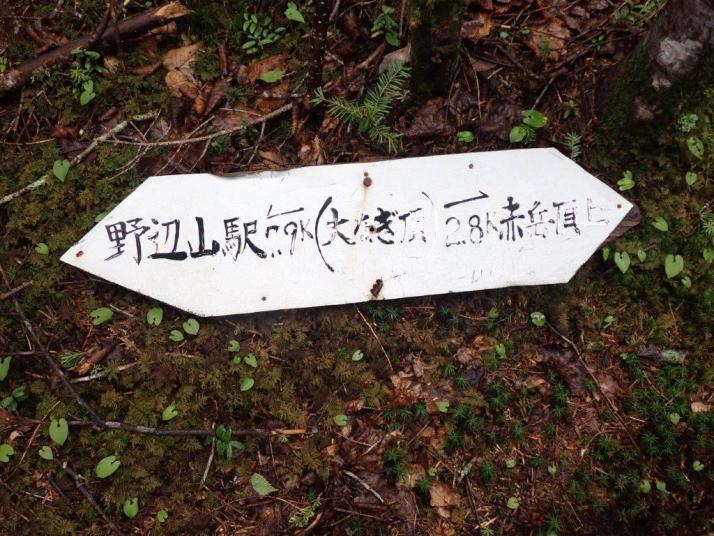 野辺山駅 ← .9K (大なぎ頂) → 2.8K 赤岳頂上